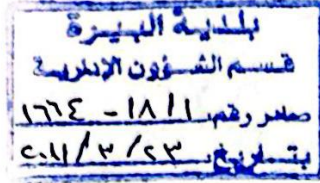 بلدية البيرة
قسم الشؤون الإدارية
صادر رقم: ١٨/١ - ١٦٦٤
بتاريخ: ٢٠١١/٣/٢٣